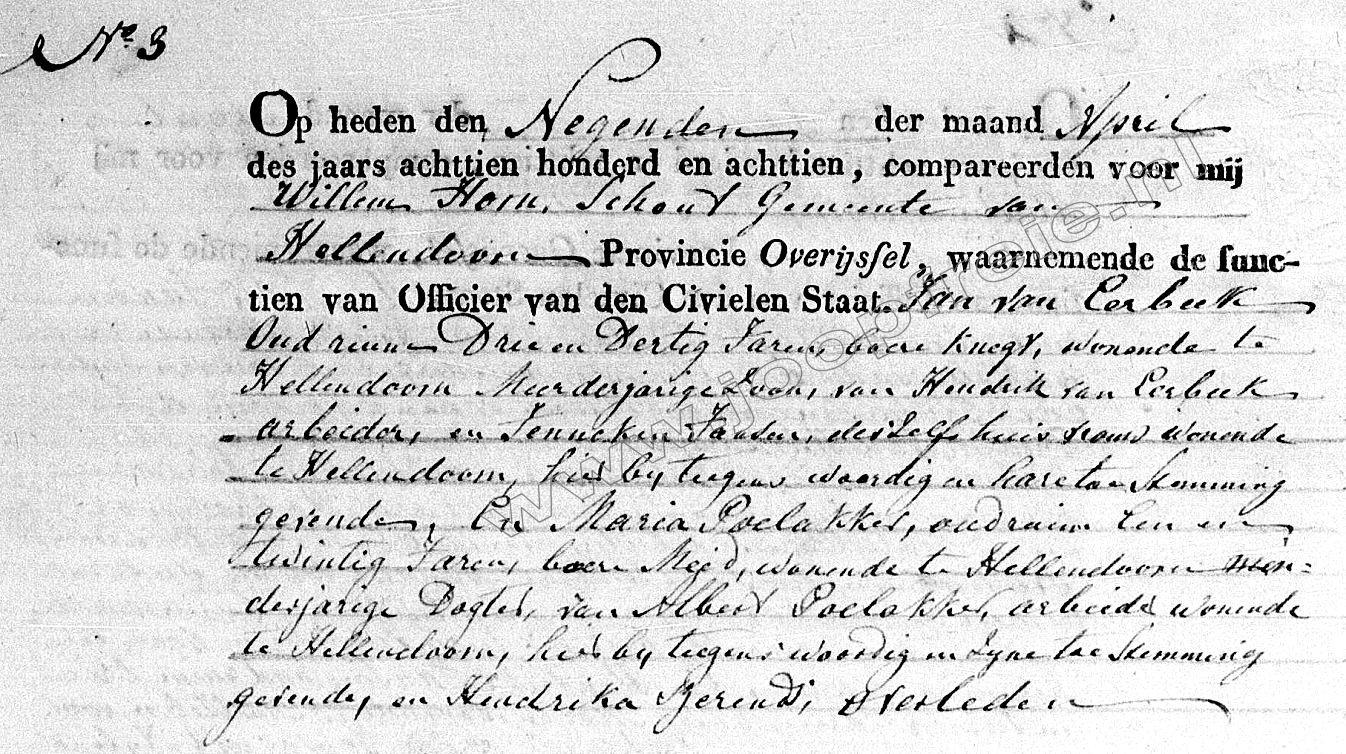 No 3
Op heden den Negenden der maand April
des jaars achttien honderd en achttien, compareerden voor mij
Willem Horn, Schout Gemeente van
Hellendoorn Provincie Overijssel, waarnemende de func-
tien van Officier van den Civielen Staat. Jan van Eerbeek
Oud ruim Drie en Dertig Jaren, boere knegt, wonende te
Hellendoorn Meerderjarige Zoon, van Hendrik van Eerbeek
arbeider, en Jenneken Jansen, deszelfs huisvrouw wonende
te Hellendoorn, hier by teegenswoordig en hare toe Stemming
gevende, En Maria Poelakker, oud ruim Een en
twintig Jaren, boere Meijd, wonende te Hellendoorn min-
derjarige Dogter, van Albert Poelakker, arbeider wonende
te Hellendoorn, hier by teegenswoordig en Zyne toe Stemming
gevende, en Hendrika Berends, overleden
www.jooptroie.nl